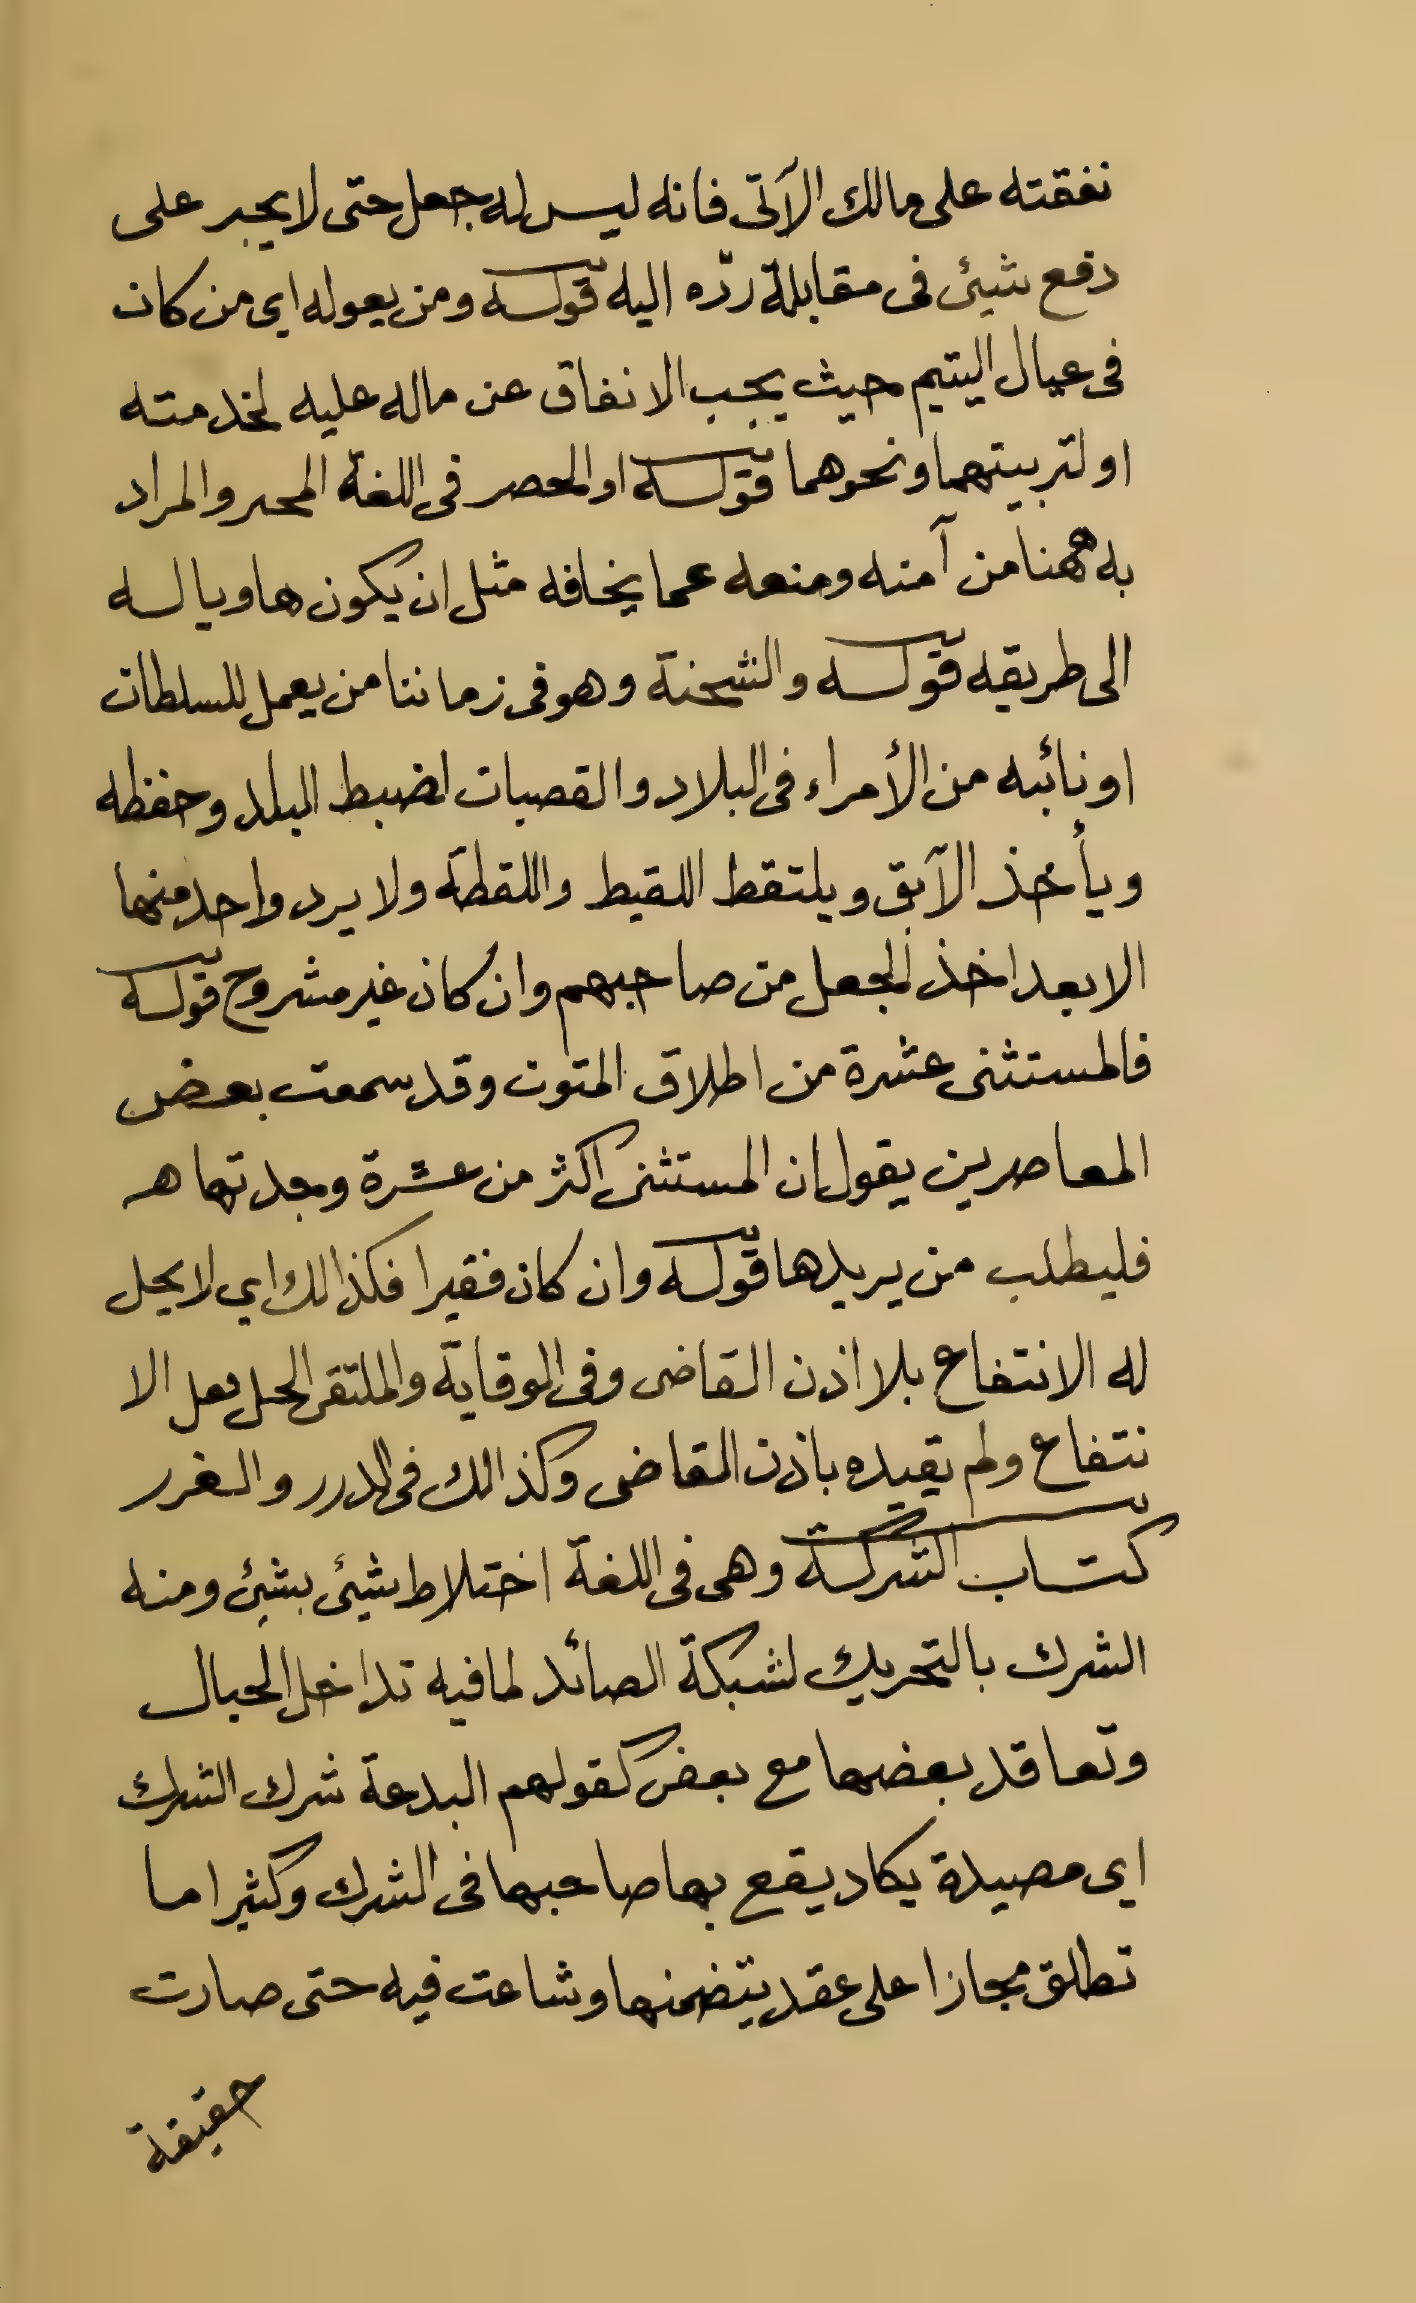 نفقته على مالك الآتى فانه ليس له جعل حتى لا يجبر على
دفع شيئ فى مقابلة ردّه اليه قوله ومن يعوله اى من كان
فى عيال اليتيم حيث يجب الانفاق عن ماله عليه لخدمته
او لتربيتهما ونحوهما قوله او الحصر فى اللغة المحبر والمراد
به ههنا من آمنه ومنعه عما يخافه مثل ان يكون هاويا له
الى طريقه قوله والشحنة وهو فى زماننا من يعمل للسلطان
او نائبه من الأمراء فى البلاد والقصبات لضبط البلد وحفظه
ويأخذ الآبق ويلتقط اللقيط واللقطة ولا يرد واحد منها
الا بعد اخذ الجعل من صاحبهم وان كان غير مشروح قوله
فالمستثنى عشرة من اطلاق المتون وقد سمعت بعض
المعاصرين يقول ان المستثنى اكثر من عشرة وجدتها هـ
فليطلب من يريدها قوله وان كان فقيرا فكذالك اي لا يحل
له الانتفاع بلا اذن القاضى وفى الوقاية والملتقى الحل بعل الا
نتفاع ولم يقيده باذن القاضى وكذالك فى الدرر والغرر
كتاب الشركة وهى فى اللغة اختلاط شيئ بشيئ ومنه
الشرك بالتحريك لشبكة الصائد لما فيه تداخل الحبال
وتعاقد بعضها مع بعض كقولهم البدعة شرك الشرك
اي مصيدة يكاد يقع بها صاحبها فى الشرك وكثيرا ما
تطلق مجازا على عقد يتضمنها وشاعت فيه حتى صارت
حقيقة